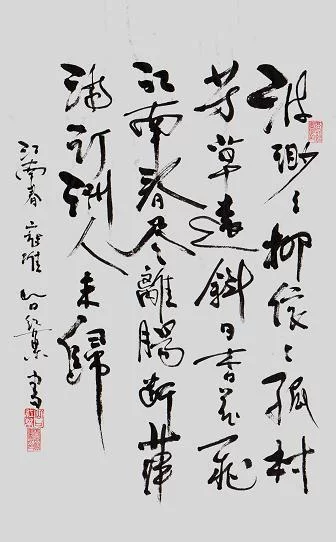 波渺〻柳依〻孤村
芳草遠斜日杏花飛
江南春尽離腸断蘋
滿汀洲人未歸
江南春 寇準 書